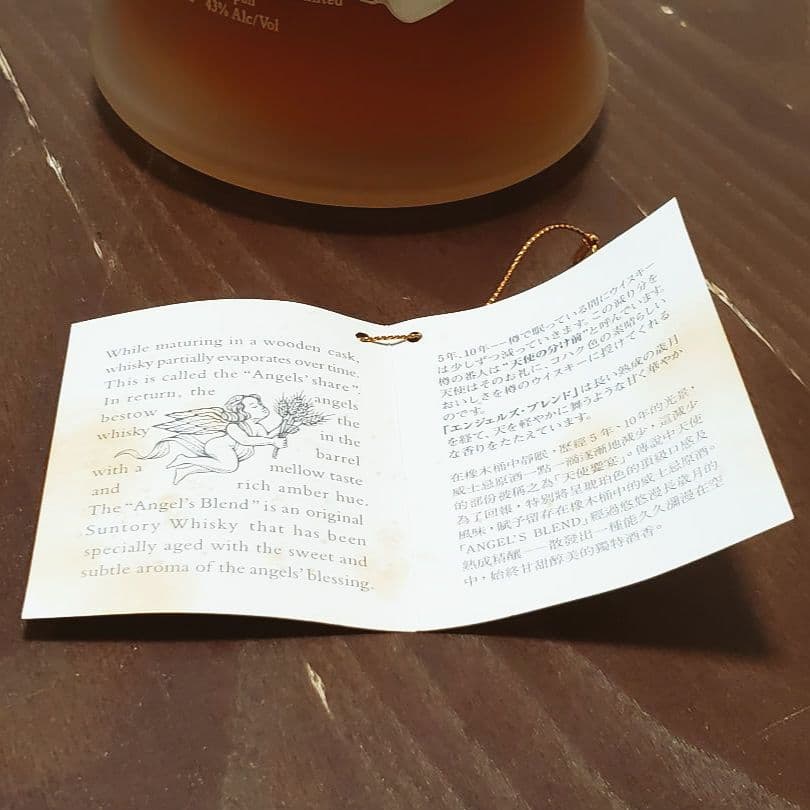 43% Alc/Vol
While maturing in a wooden cask,
whisky partially evaporates over time.
This is called the “Angels’ share”.
In return, the angels
bestow the
whisky in the
barrel
with a mellow taste
and rich amber hue.
The “Angel’s Blend” is an original
Suntory Whisky that has been
specially aged with the sweet and
subtle aroma of the angels’ blessing.
5年、10年——樽で眠っている間にウイスキー
は少しずつ減っていきます。この減り分を
樽の番人は“天使の分け前”と呼んでいます。
天使はそのお礼に、コハク色の素晴らしい
おいしさを樽のウイスキーに授けてくれる
のです。
「エンジェルズ・ブレンド」は長い熟成の歳月
を経て、天を軽やかに舞うような甘く華やか
な香りをたたえています。
在橡木桶中靜眠，歷經5年、10年的光景，
威士忌原酒一點一滴逐漸地減少，這減少
的部份被稱之為「天使饗宴」。傳說中天使
為了回報，特別將呈琥珀色的頂級口感及
風味，賦予留存在橡木桶中的威士忌原酒。
「ANGEL'S BLEND」經過悠悠漫長歲月的
熟成精釀——散發出一種能久久瀰漫在空
中，始終甘甜醇美的獨特酒香。